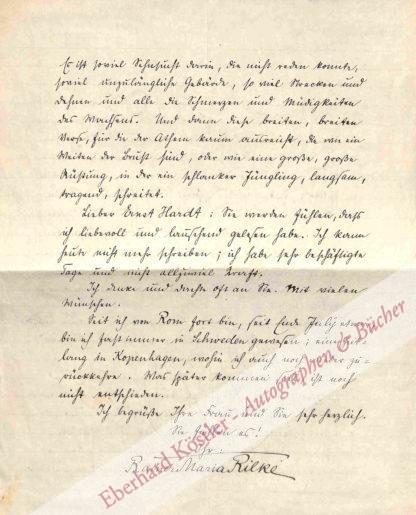 Es ist soviel Sehnsucht darin, die nicht reden konnte,
soviel unzulängliche Gebärde, so viel Strecken und
Dehnen und alle die Schmerzen und Müdigkeiten
des Wachsens. Und dann diese breiten, breiten
Verse, für die der Athem kaum ausreicht, die wie ein
Weiten der Brust sind, oder wie eine große, große
Rüstung, in der ein schlanker Jüngling, langsam,
tragend, schreitet.
Lieber Ernst Hardt: Sie werden fühlen, dass
ich liebevoll und lauschend gelesen habe. Ich kann
heute nicht mehr schreiben; ich habe sehr beschäftigte
Tage und nicht allzuviel Kraft.
Ich denke und dachte oft an Sie. Mit vielen
Wünschen.
Seit ich von Rom fort bin, seit Ende July
bin ich fast immer in Schweden gewesen;
lang in Kopenhagen, wohin ich auch noch zu-
rückkehre. Was später kommen ist noch
nicht entschieden.
Ich begrüße Ihre Frau und Sie sehr herzlich.
Ihr:
Rainer Maria Rilke
Eberhard Köstler - Autographen & Bücher